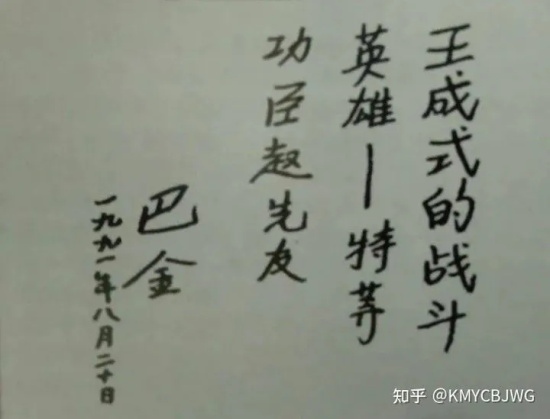 王成式的战斗
英雄—特等
功臣赵先友
巴金
一九九一年八月二十日
知乎 @KMYCBJWG